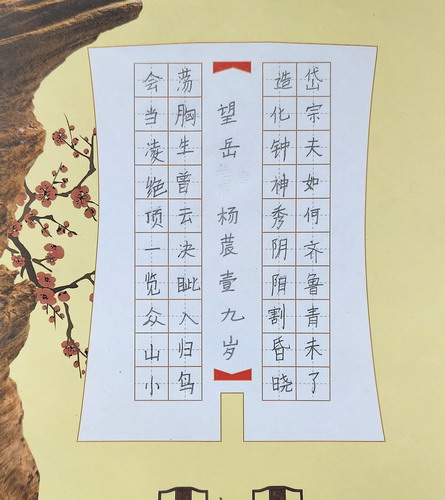 岱宗夫如何齐鲁青未了
造化钟神秀阴阳割昏晓
望岳 杨莀壹九岁
荡胸生曾云决眦入归鸟
会当凌绝顶一览众山小